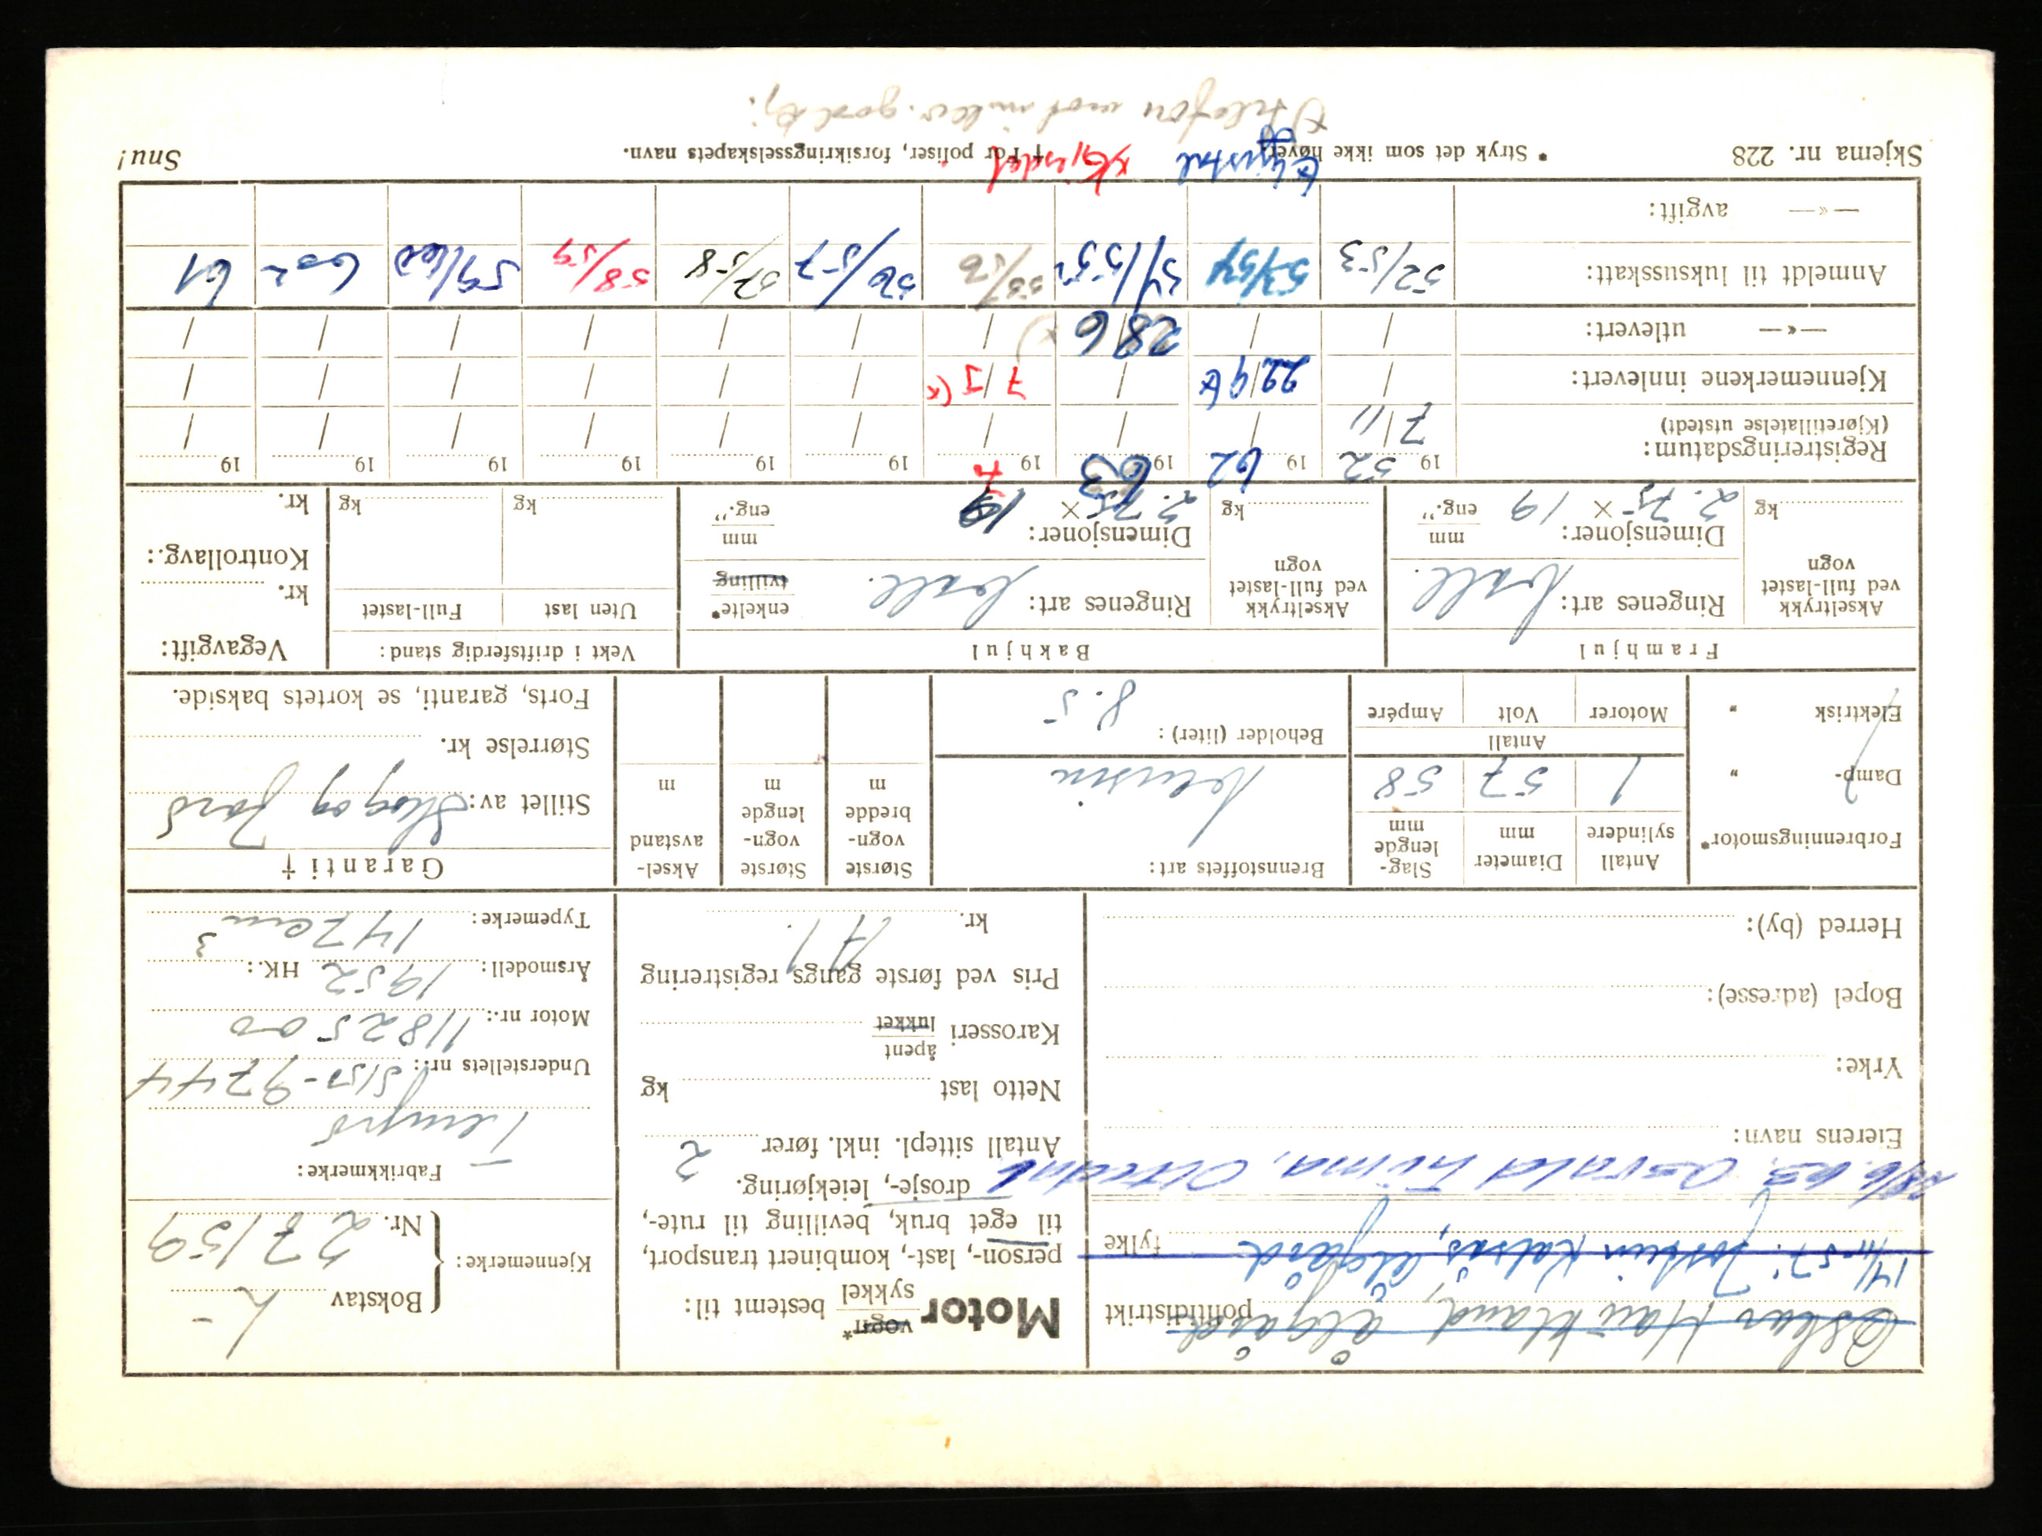 Oskar Haukland, Ålgård
politidistrikt
14/11-57: Jostein Kalsås, Ålgård
fylke
28/6.63. Osvald Lima, Oltedal
Eierens navn:
Yrke:
Bopel (adresse):
Herred (by):
Motor vogn* sykkel bestemt til:
person-, last-, kombinert transport,
til eget bruk, bevilling til rute-,
drosje-, leiekjøring.
Antall sittepl. inkl. fører 2
Netto last kg
Karosseri åpent lukket
Pris ved første gangs registrering
kr.
Kjennemerke: Bokstav L-
Nr. 27159
Fabrikkmerke:
Tempo
Understellets nr.: 5151-9744
Motor nr.: 1182500
Årsmodell: 1952 HK.:
Typemerke: 147 cm3
Forbrenningsmotor*
Damp- "
Elektrisk "
Antall sylindere 1
Diameter mm 57
Slag-lengde mm 58
Antall
Motorer Volt Ampére
Brennstoffets art:
Bensin
Beholder (liter): 8.5
Største vogn-bredde m
Største vogn-lengde m
Aksel-avstand m
Garanti †
Stillet av: Skog og Jord
Størrelse kr.
Forts, garanti, se kortets bakside.
Framhjul
Akseltrykk ved full-lastet vogn kg
Ringenes art:
Dimensjoner: 2.75 × 19 mm eng."
Bakhjul
Akseltrykk ved full-lastet vogn kg
Ringenes art:
enkelte* tvilling
Dimensjoner: 2.75 × 19 mm eng."
Vekt i driftsferdig stand:
Uten last Full-lastet
kg kg
Vegavgift:
kr.
Kontrollavg.:
kr.
Registreringsdatum:
(Kjøretillatelse utstedt)
1952 1962 1963 19 19 19 19 19 19 19
7/11 / / / / / / / / /
Kjennemerkene innlevert:
/ 22/9 / 7/1 x) / / / / / /
—«— utlevert:
/ / 28/6 / / / / / / /
Anmeldt til luksusskatt:
52/53 53/54 54/55 55/56 56/57 57/58 58/59 59/60 60 61
—«— avgift:
Skjema nr. 228
* Stryk det som ikke høver.
† For poliser, forsikringsselskapets navn.
Snu!